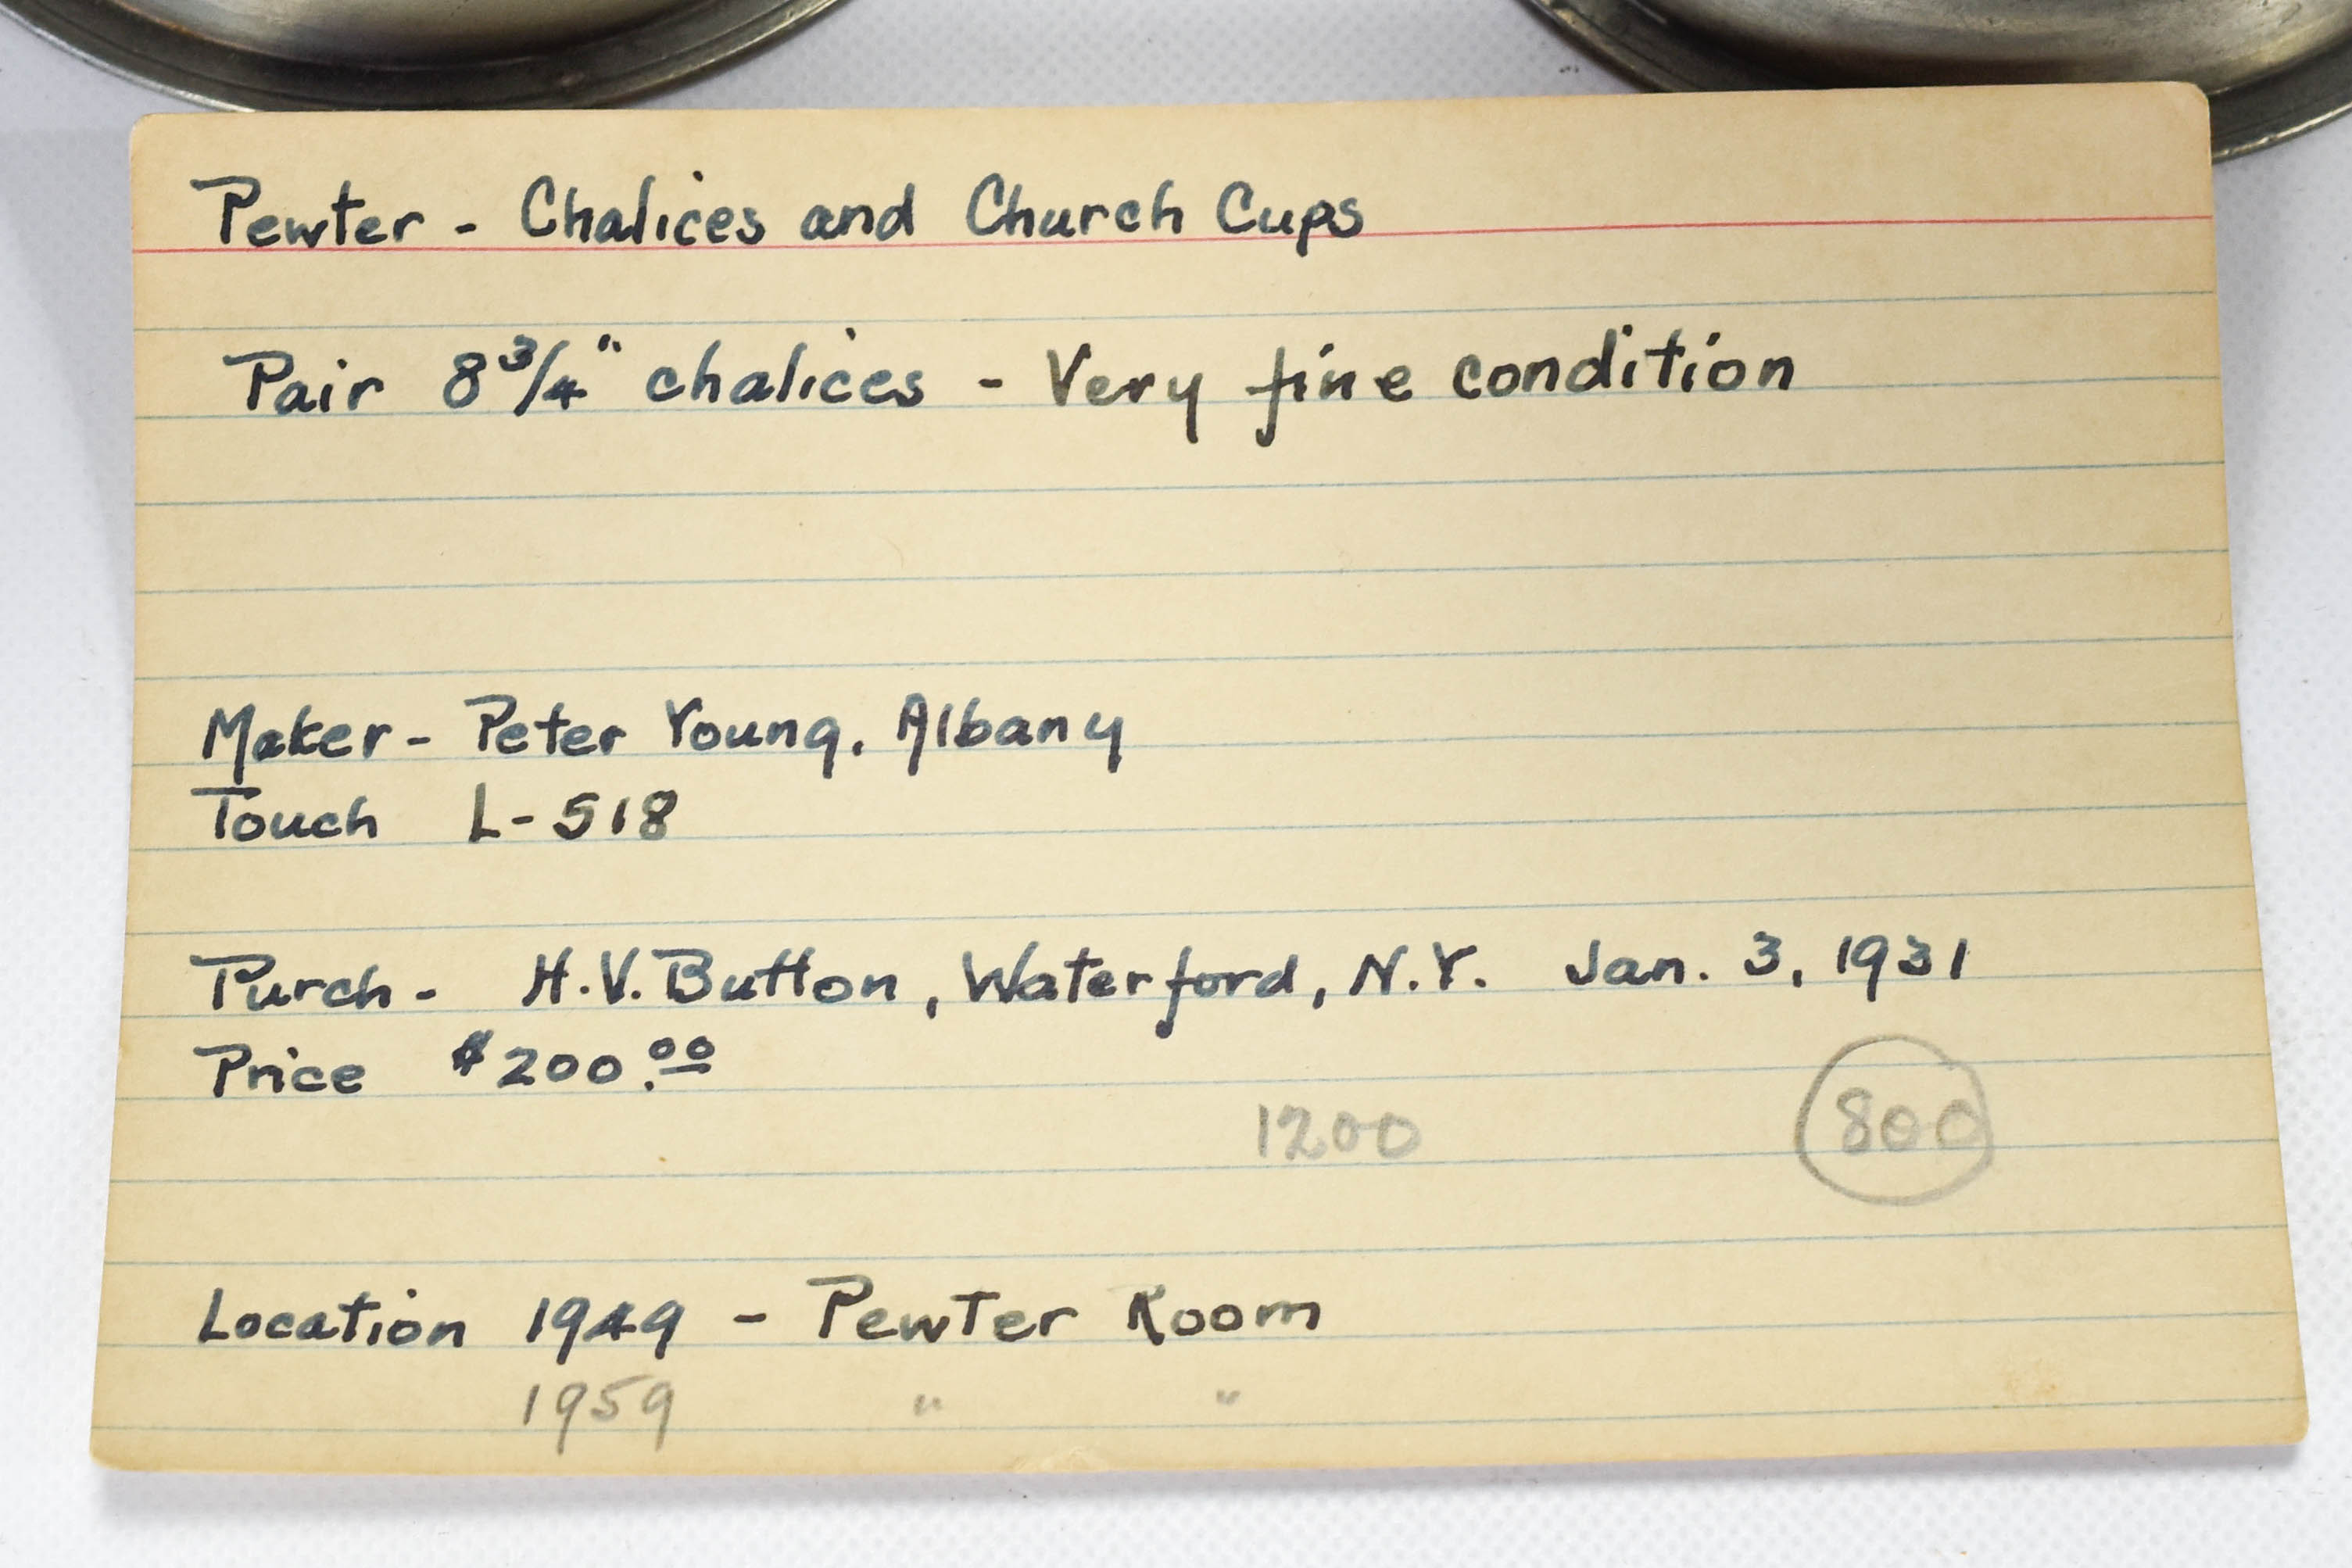 Pewter - Chalices and Church Cups
Pair 8 3/4" chalices - Very fine condition
Maker - Peter Young, Albany
Touch L-518
Purch - H.V. Button, Waterford, N.Y. Jan. 3, 1931
Price $200.00
1200 800
Location 1949 - Pewter Room
1959 " "